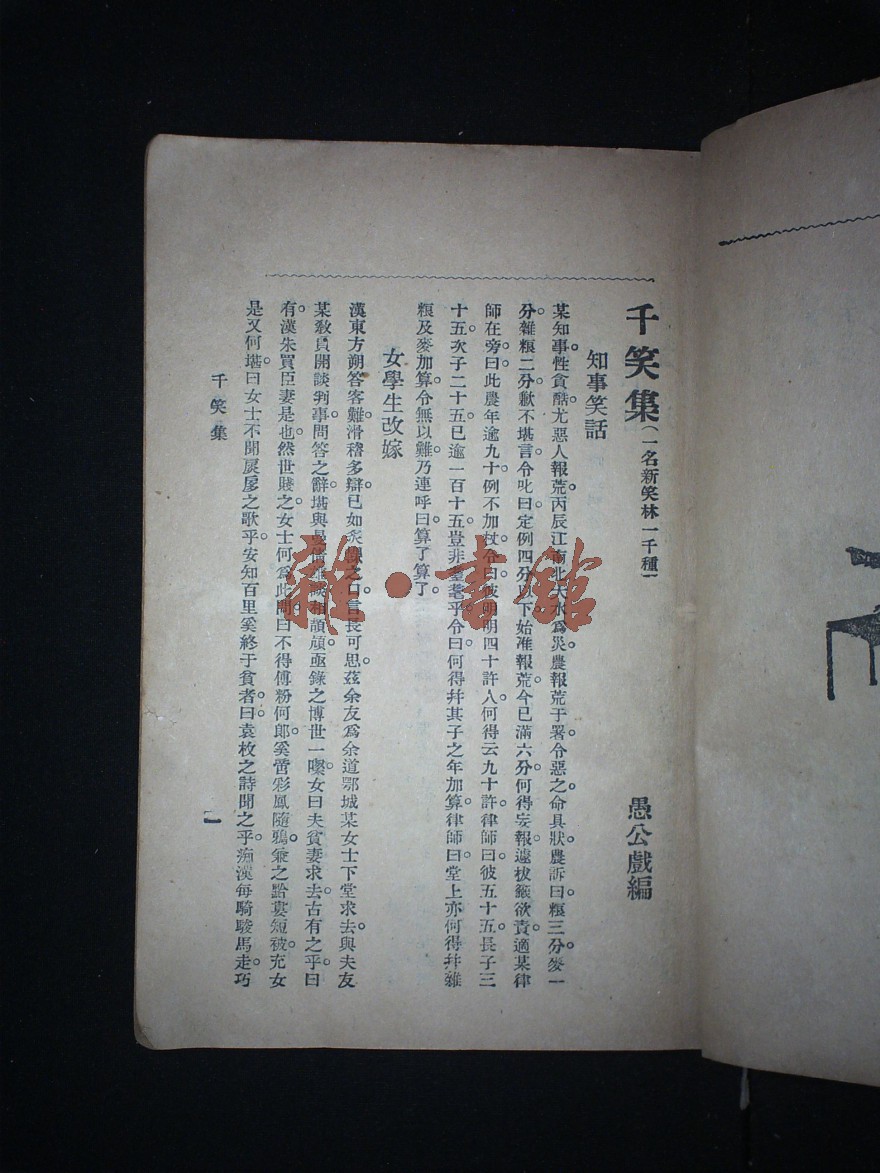 千笑集(一名新笑林一千種)
愚公戲編
知事笑話
某知事性貪酷尤惡人報荒。丙辰江南北大水爲災。農報荒于署。令惡之。命具狀。農訴曰。糧三分。麥一
分。雜糧二分。歉不堪言。令叱曰。定例四分以下始准報荒。今已滿六分。何得妄報。遽拔籤欲責。適某律
師在旁。曰。此農年逾九十。例不加杖。令曰。彼明明四十許人。何得云九十許。律師曰。彼五十五。長子三
十五。次子二十五。已逾一百十五。豈非耄耋乎。令曰。何得幷其子之年加算。律師曰。堂上亦何得幷雜
糧及麥加算。令無以難。乃連呼曰。算了算了。
女學生改嫁
漢東方朔答客難。滑稽多辯。已如 之口。言長可思。茲余友爲余道鄂城某女士下堂求去。與夫友
某敎員開談判事。問答之辭。堪與 相頡頏。亟錄之。博世一噱。女曰。夫貧妻求去。古有之乎。曰
有。漢朱買臣妻是也。然世賤之。女士何爲此問。曰。不得傅粉何郞。奚啻彩鳳隨鴉。兼之黔婁短被。充女
是又何堪。曰。女士不聞扊扅之歌乎。安知百里奚終于貧者。曰。袁枚之詩聞之乎。痴漢每騎駿馬走。巧
千笑集
一
雜·書館